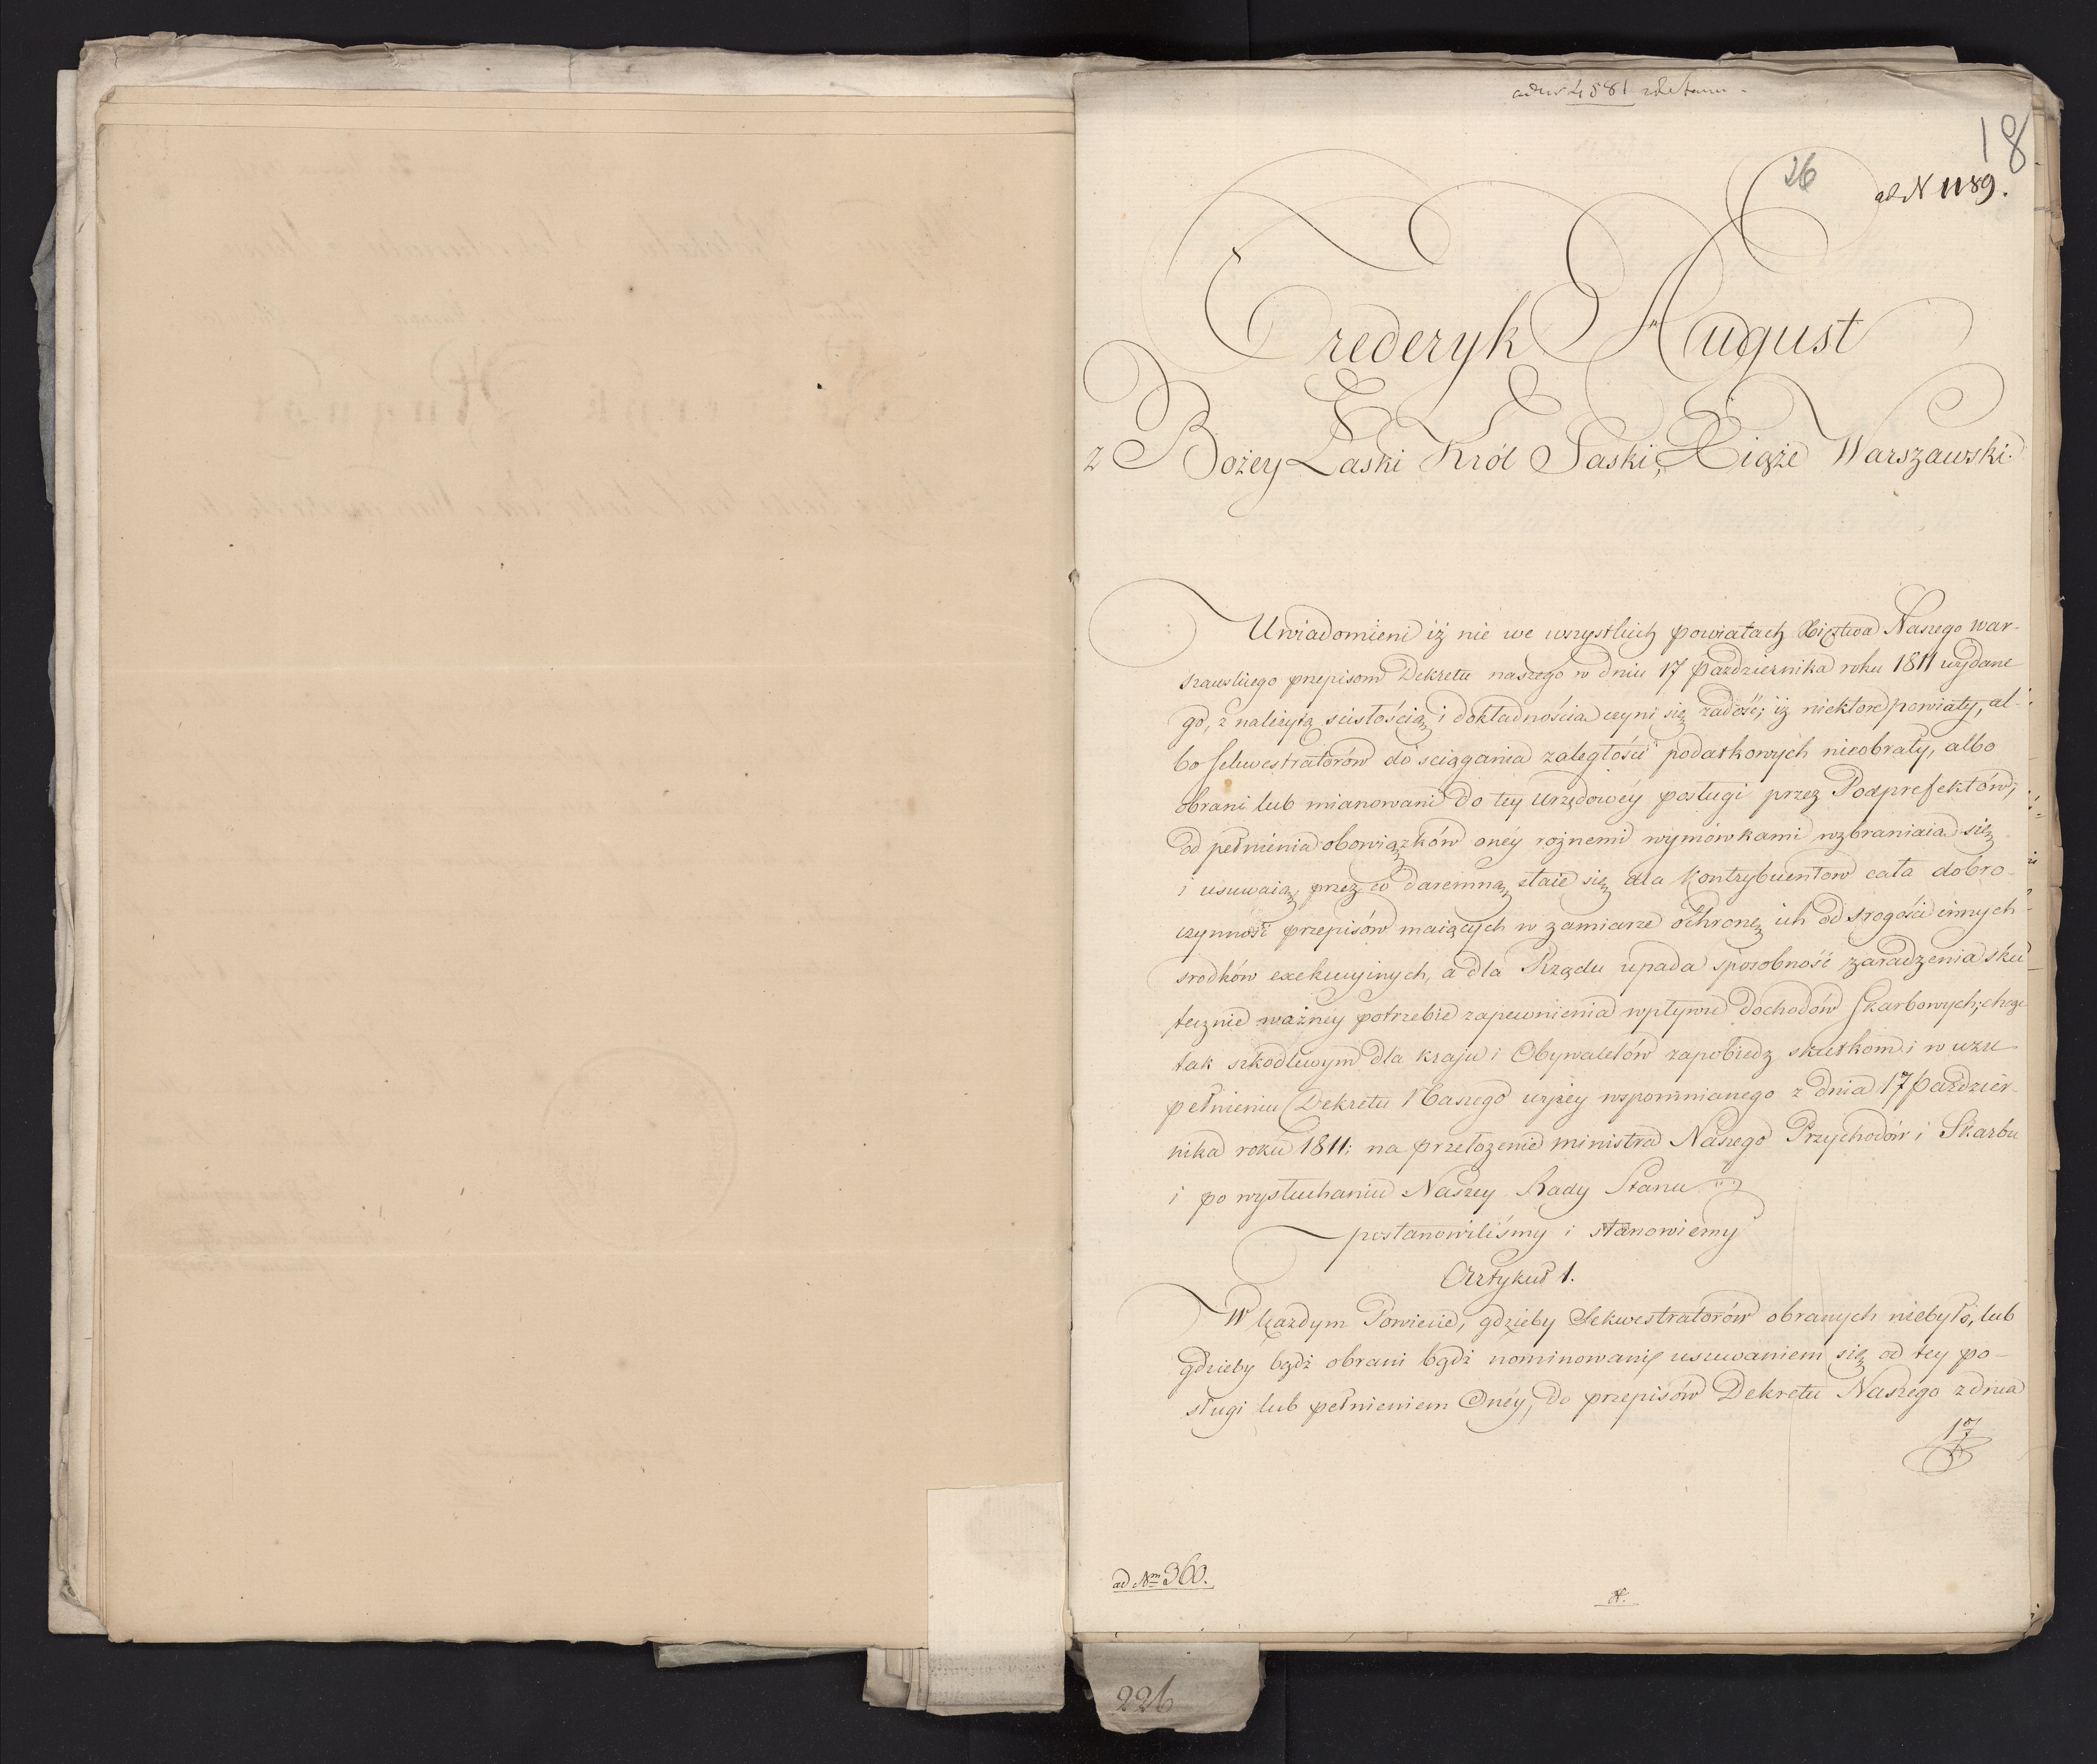 ad N 1189.
18
26
Frederyk August
z Bożey Łaski Król Saski, Xiąże Warszawski.
Uwiadomieni iż nie we wszystkich powiatach Xięstwa Naszego War-
szawskiego przepisom Dekretu naszego w dniu 17 Października roku 1811 wydane
go, z należytą scisłością i dokładnościa czyni się zadość; iż niektore powiaty, al-
bo Sekwestratorów do sciągania zaległości podatkowych nieobrały, albo
obrani lub mianowani do tey Urzędowéy posługi przez Podprefektów,
od pełnienia obowiązków onéy rożnemi wymówkami wzbraniaią się
i usuwaią, przez co daremną staie się dla Kontrybuentow cała dobro-
czynność przepisów maiących w zamiarze ochronę ich od srogości innych
srodków exekucyinych, a dla Rządu upada sposobność zaradzenia sku
tecznie ważney potrzebie zapewnienia wpływu dochodów Skarbowych; chcąc
tak szkodliwym dla kraju i Obywatelów zapobiedz skutkom i w uzu
pełnieniu Dekretu Naszego wyżey wspomnianego z dnia 17 Paździer-
nika roku 1811; na przełożenie ministra Naszego Przychodów i Skarbu
i po wysłuchaniu Naszey Rady Stanu
postanowiliśmy i stanowiemy
Artykuł 1.
W każdym Powiecie, gdzieby Sekwestratorów obranych niebyło, lub
gdzieby bądź obrani bądź nominowani usuwaniem się od tey po-
sługi lub pełnieniem Onéy, do przepisów Dekretu Naszego z dnia
17
ad Nrm 360.
226